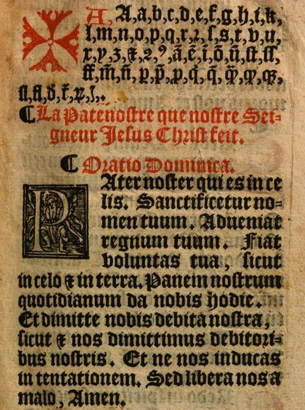 A, A,a,b,c,d,e,f,g,h,i,k,
l,m,n,o,p,q,r,ꝛ,ſ,s,t,v,u,
x,y,z,⁊,ꝛ,9,ã,ẽ,ĩ,õ,ũ,ſt,ſſ,
ff,m̃,ñ,
¶ La Patenostre que nostre Sei-
gneur Jesus Christ feit.
¶ Oratio Dominica.
PAter noster qui es in ce
lis. Sanctificetur no-
men tuum. Adueniat
regnum tuum. Fiat
voluntas tua, sicut
in celo ⁊ in terra. Panem nostrum
quotidianum da nobis hodie.
Et dimitte nobis debita nostra,
sicut ⁊ nos dimittimus debitori-
bus nostris. Et ne nos inducas
in tentationem. Sed libera nos a
malo, Amen.